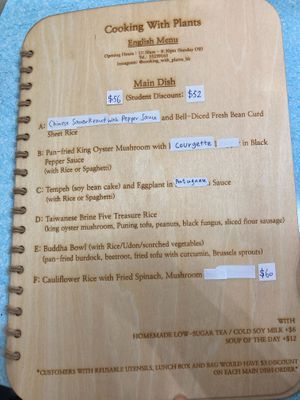 Cooking With Plants
English Menu
Opening Hours : 11:30am - 8:30pm (Sunday Off)
Instagram: @cooking_with_plants_hk
Main Dish
$56 (Student Discount: $52
A: Chinese Sauerkraut with Pepper Sauce and Bell-Diced Fresh Bean Curd
Sheet Rice
B: Pan-fried King Oyster Mushroom with Courgette in Black
Pepper Sauce
(with Rice or Spaghetti)
C: Tempeh (soy bean cake) and Eggplant in Portuguese Sauce
(with Rice or Spaghetti)
D: Taiwanese Brine Five Treasure Rice
(king oyster mushroom, Puning tofu, peanuts, black fungus, sliced flour sausage)
E: Buddha Bowl (with Rice/Udon/scorched vegetables)
(pan-fried burdock, beetroot, fried tofu with curcumin, Brussels sprouts)
F: Cauliflower Rice with Fried Spinach, Mushroom $60
WITH
HOMEMADE LOW-SUGAR TEA / COLD SOY MILK +$8
SOUP OF THE DAY +$12
*CUSTOMERS WITH REUSABLE UTENSILS, LUNCH BOX AND BAG WOULD HAVE $3 DISCOUNT
ON EACH MAIN DISH ORDER*